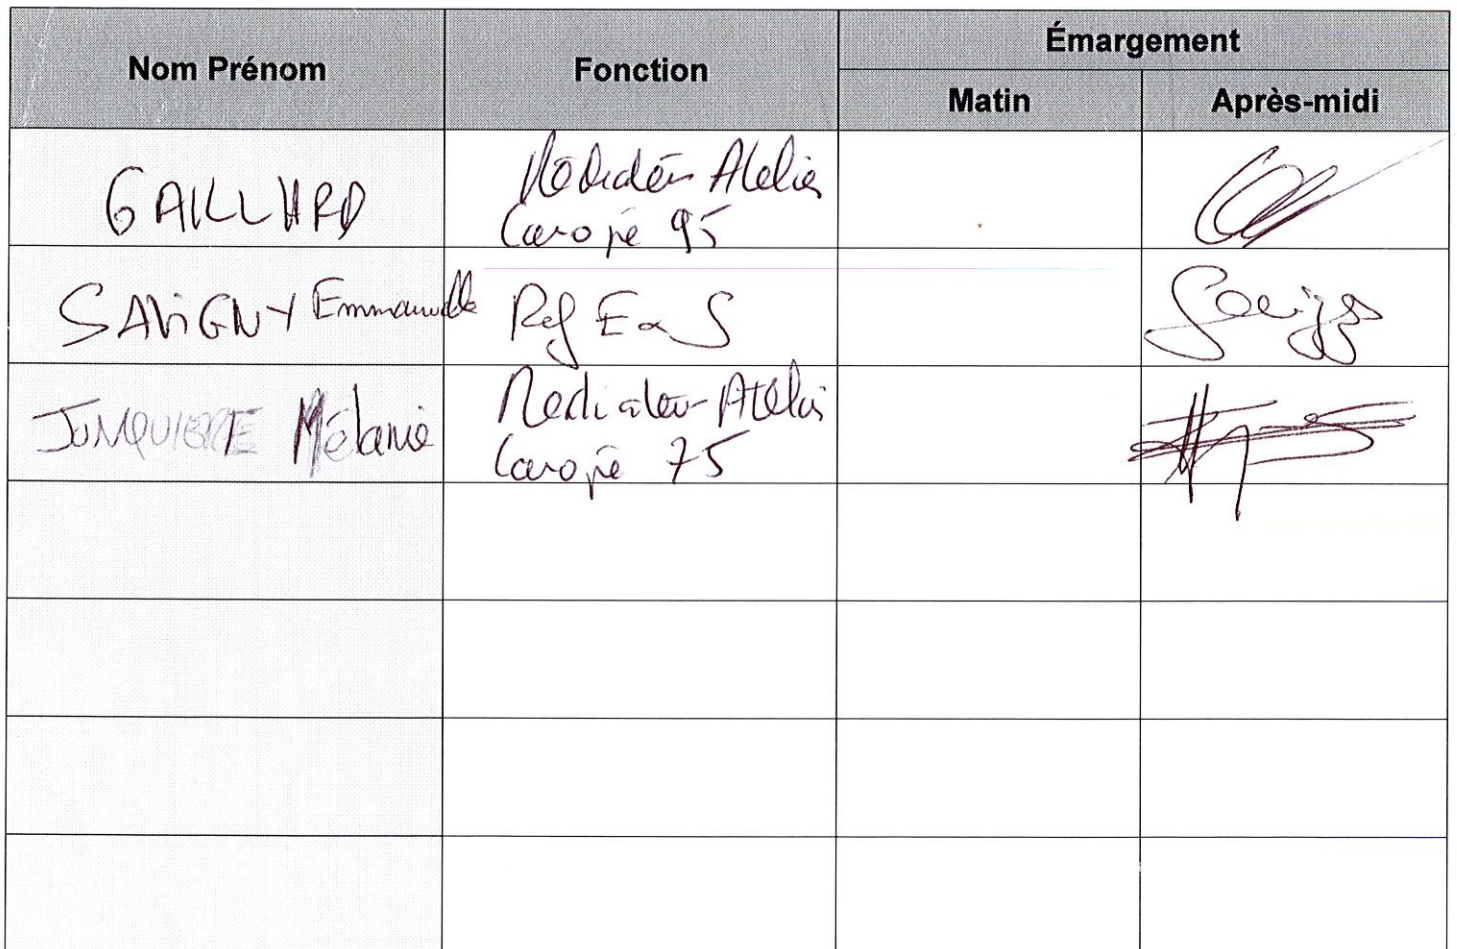 Nom Prénom
Fonction
Émargement
Matin
Après-midi
GAILLARD
Médiateur Atelier
Canopé 95
SAVIGNY Emmanuelle
Ref EaS
Mélanie
Médiateur Atelier
Canopé 75